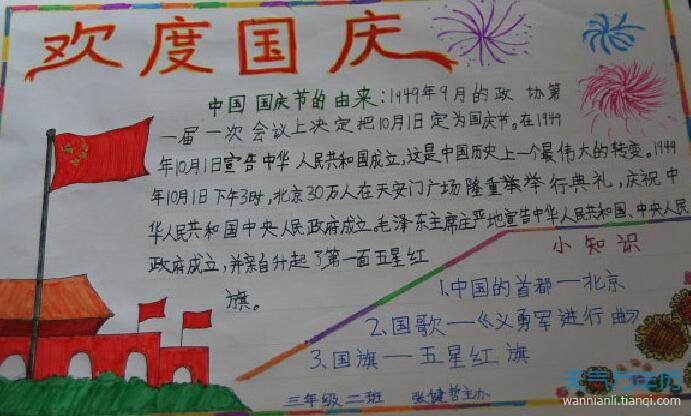 欢度国庆
中国国庆节的由来:1949年9月的政协第
一届一次会议上决定把10月1日定为国庆节。在1949
年10月1日宣告中华人民共和国成立,这是中国历史上一个最伟大的转变。1949
年10月1日下午3时,北京30万人在天安门广场隆重举举行典礼,庆祝中
华人民共和国中央人民政府成立。毛泽东主席庄严地宣告中华人民共和国、中央人民
政府成立,并亲自升起了第一面五星红
旗。
小知识
1、中国的首都—北京
2、国歌—《义勇军进行曲》
3、国旗—五星红旗
三年级二班 张健哲主办
天气万年历
wannianli.tianqi.com